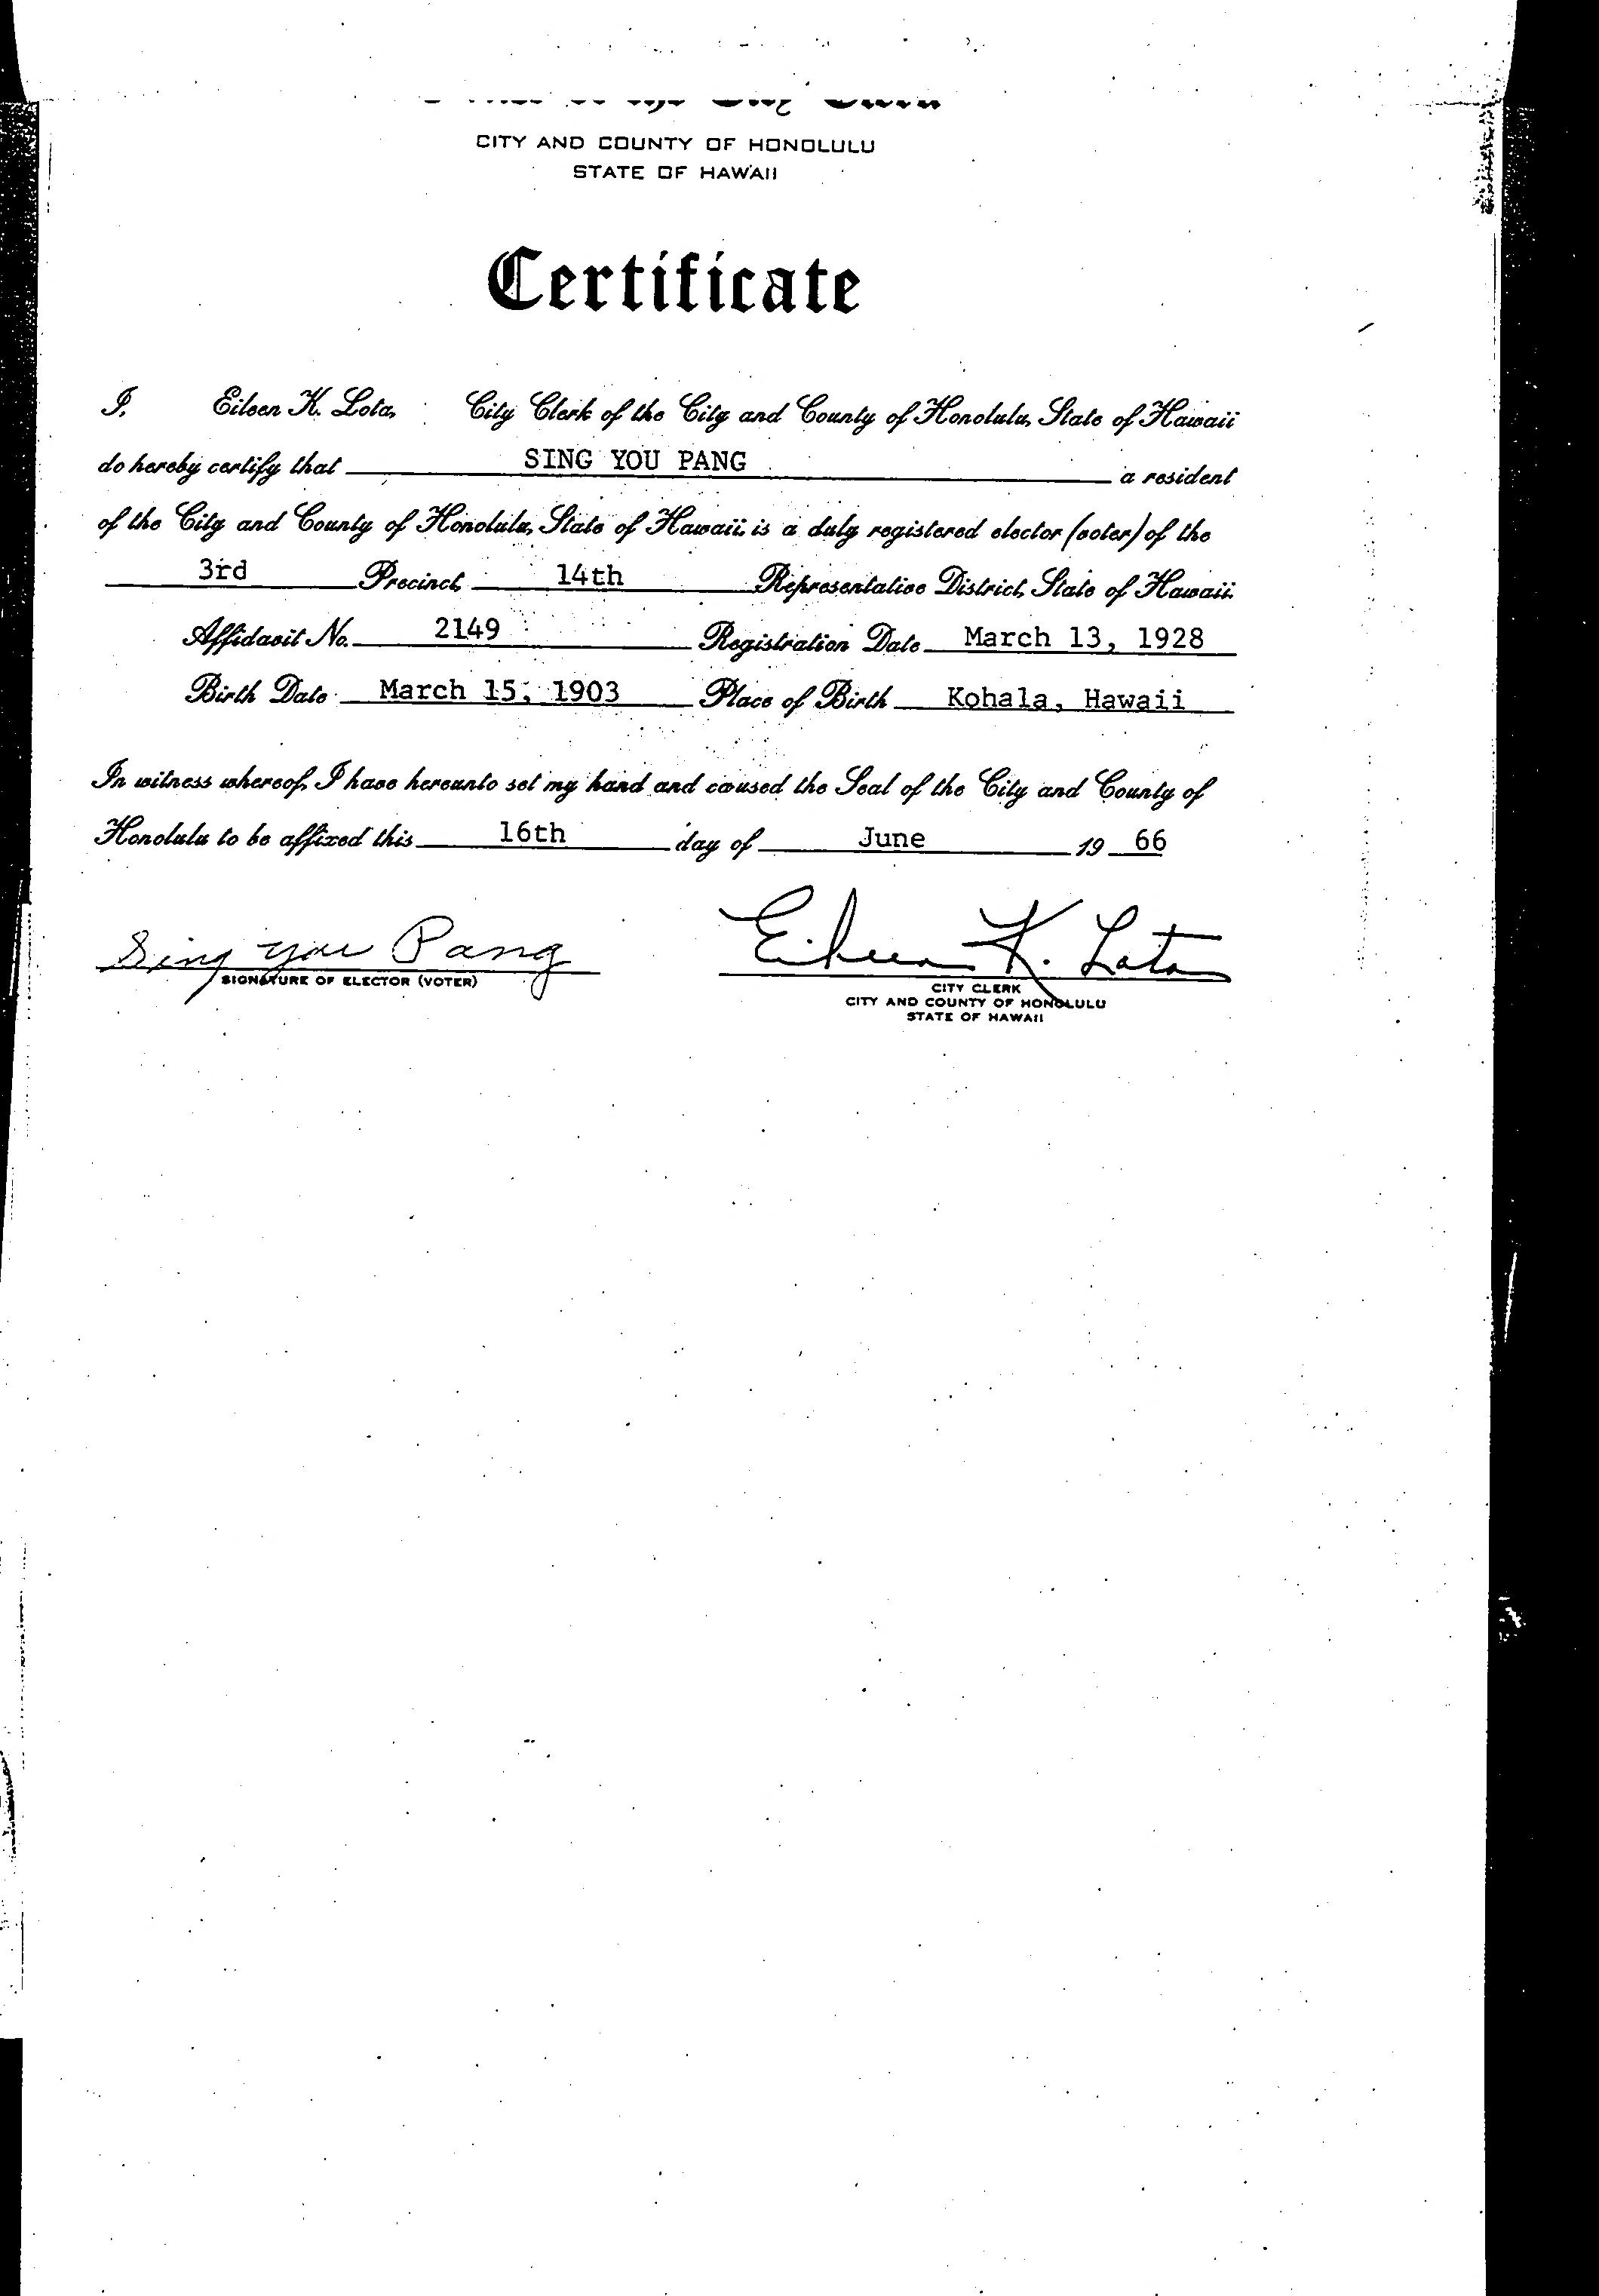 CITY AND COUNTY OF HONOLULU
STATE OF HAWAII
Certificate
I, Eileen K. Lota, City Clerk of the City and County of Honolulu, State of Hawaii
do hereby certify that SING YOU PANG a resident
of the City and County of Honolulu, State of Hawaii, is a duly registered elector (voter) of the
3rd Precinct, 14th Representative District, State of Hawaii.
Affidavit No. 2149 Registration Date March 13, 1928
Birth Date March 15, 1903 Place of Birth Kohala, Hawaii
In witness whereof, I have hereunto set my hand and caused the Seal of the City and County of
Honolulu to be affixed this 16th day of June 19 66
Sing You Pang Eileen K. Lota
SIGNATURE OF ELECTOR (VOTER) CITY CLERK
CITY AND COUNTY OF HONOLULU
STATE OF HAWAII